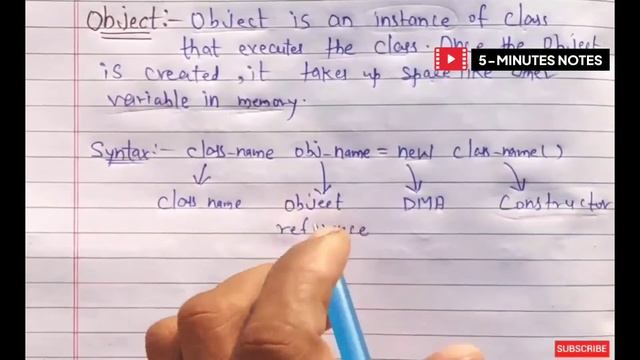 Object:- Object is an instance of class
that executes the class. Once the Object
5-MINUTES NOTES
is created, it takes up space like other
variable in memory.
Syntax:- class-name obj-name = new class-name()
class name Object DMA Constructor
reference
SUBSCRIBE